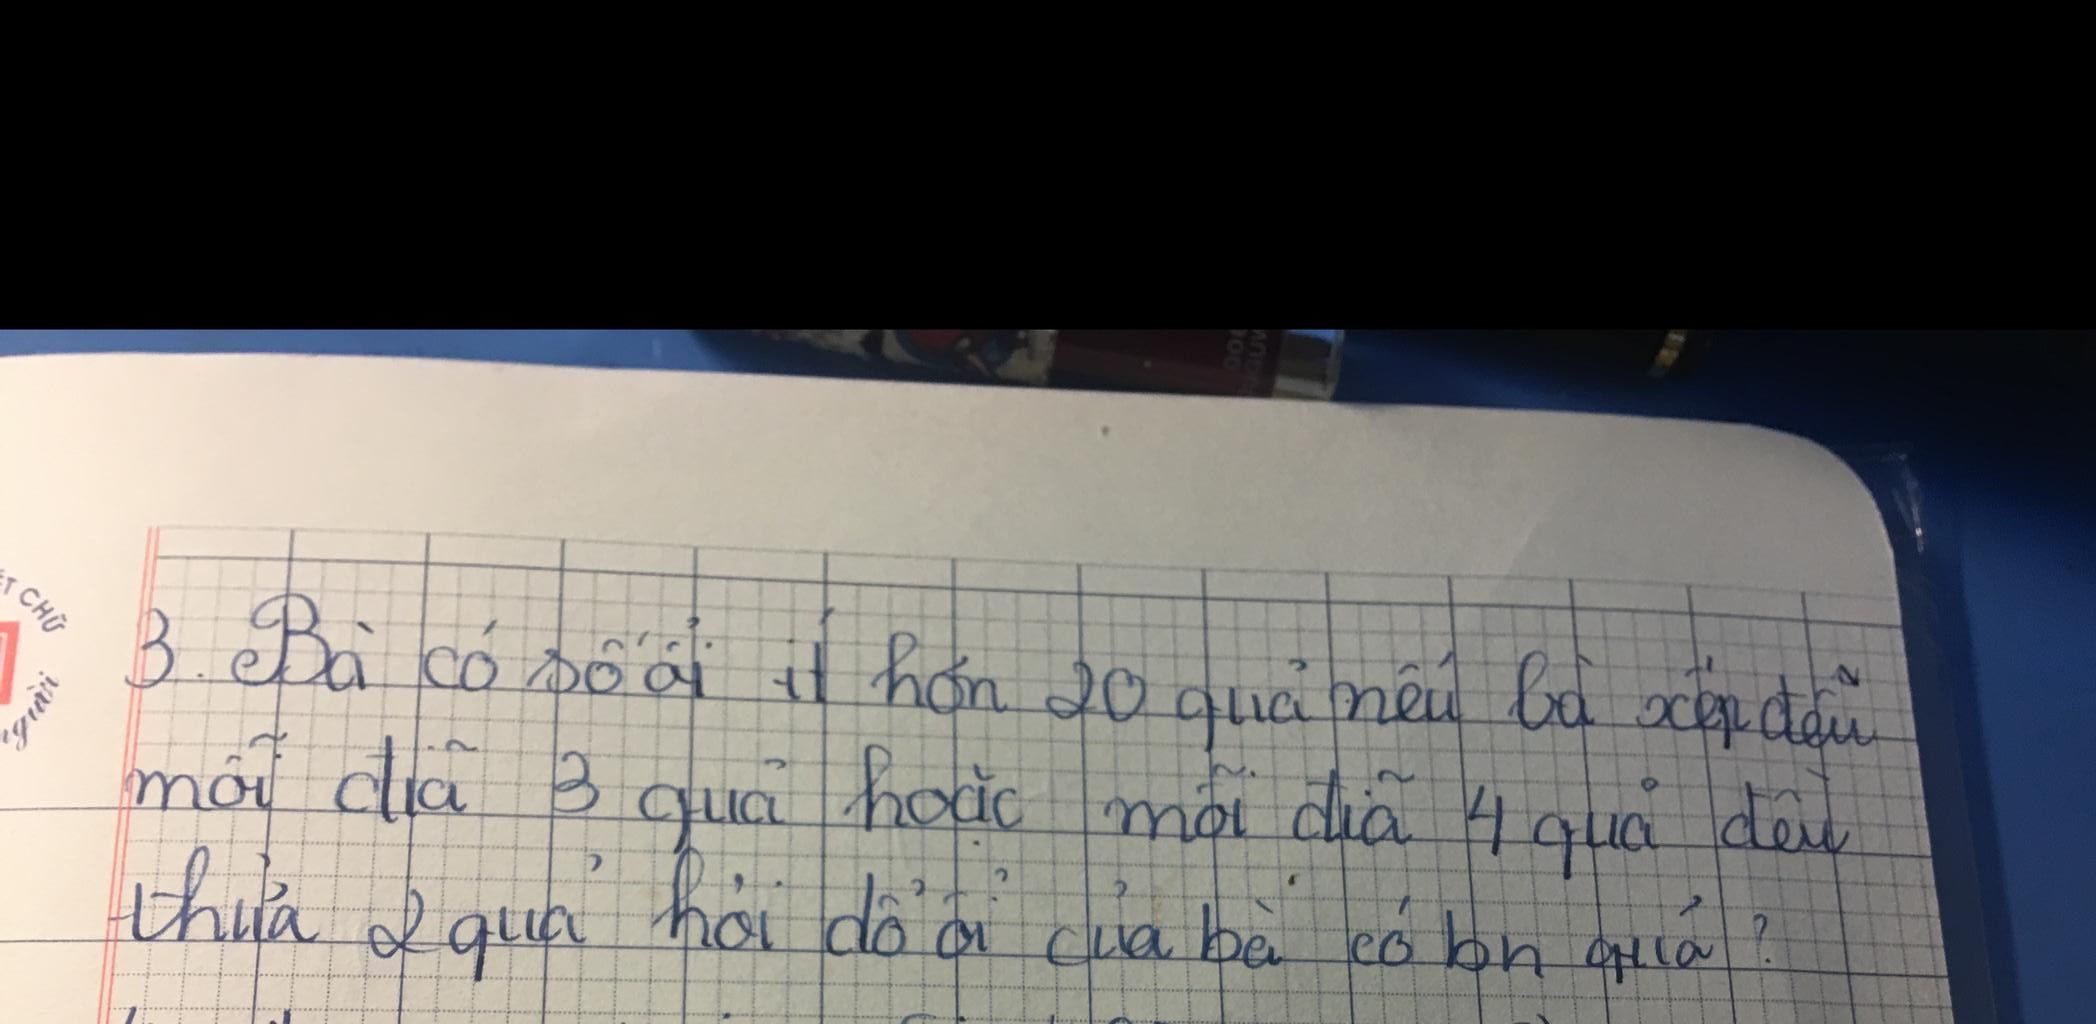 3. Bà có số ổi ít hơn 20 quả nếu bà xếp đều
mỗi đĩa 3 quả hoặc mỗi đĩa 4 quả đều
thừa 2 quả hỏi đổ ổi của bà có bn quả?
ẾT CHỮ